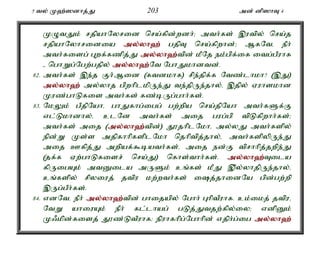 5 வல் முஹ்ஸனாத்து 203 அன் னிஸாவு 4
முழுவதும் சதியாலோசனை செய்கின்றனர்; அவர்கள் இரவில் செய்த
சதியாலோசனையை அல்லாஹ் பதிவு செய்கிறான்; ஆகவே, நீர்
அவர்களைப் புறக்கணித்து அல்லாஹ்வின் மீதே நம்பிக்கை வைப்பீராக
- பொறுப்பேற்பதில் அல்லாஹ்வே போதுமானவன்.
82. அவர்கள் இந்த குர்ஆனை (கவனமாக) சிந்திக்க வேண்டாமா? (இது)
அல்லாஹ் அல்லாத பிறரிடமிருந்து வந்திருந்தால், இதில் ஏராளமான
முரண்பாடுகளை அவர்கள் கண்டிருப்பார்கள்.
83. மேலும் பீதியோ, பாதுகாப்பைப் பற்றிய செய்தியோ அவர்களுக்கு
எட்டுமானால், உடனே அவர்கள் அதை பரப்பி விடுகிறார்கள்;
அவர்கள் அதை (அல்லாஹ்வின்) தூதரிடமோ, அல்லது அவர்களில்
நின்று முள்ள அதிகாரிகளிடமோ தெரிவித்தால், அவர்களிலிருந்து
அதை ஊகித்து அறியக்கூடியவர்கள், அதை நன்கு விசாரித்தறிந்து
(தக்க ஏற்பாடுகளைச் செய்து) கொள்வார்கள். அல்லாஹ்வுடைய
கிருபையும் அவனுடைய அருளும் உங்கள் மீது இல்லாதிருந்தால்,
உங்களில் சிலரைத் தவிர மற்றவர்கள் ஷைத்தானையே பின்பற்றி
இருப்பீர்கள்.
84. எனவே, நீர் அல்லாஹ்வின் பாதையில் போர் புரிவீராக. உம்மைத் தவிர,
வேறு யாரையும் நீர் கட்டாயப் படுத்துவதற்கில்லை; எனினும்
முஃமின்களைத் தூண்டுவீராக; நிராகரிப்போரின் எதிர்ப்பை அல்லாஹ்